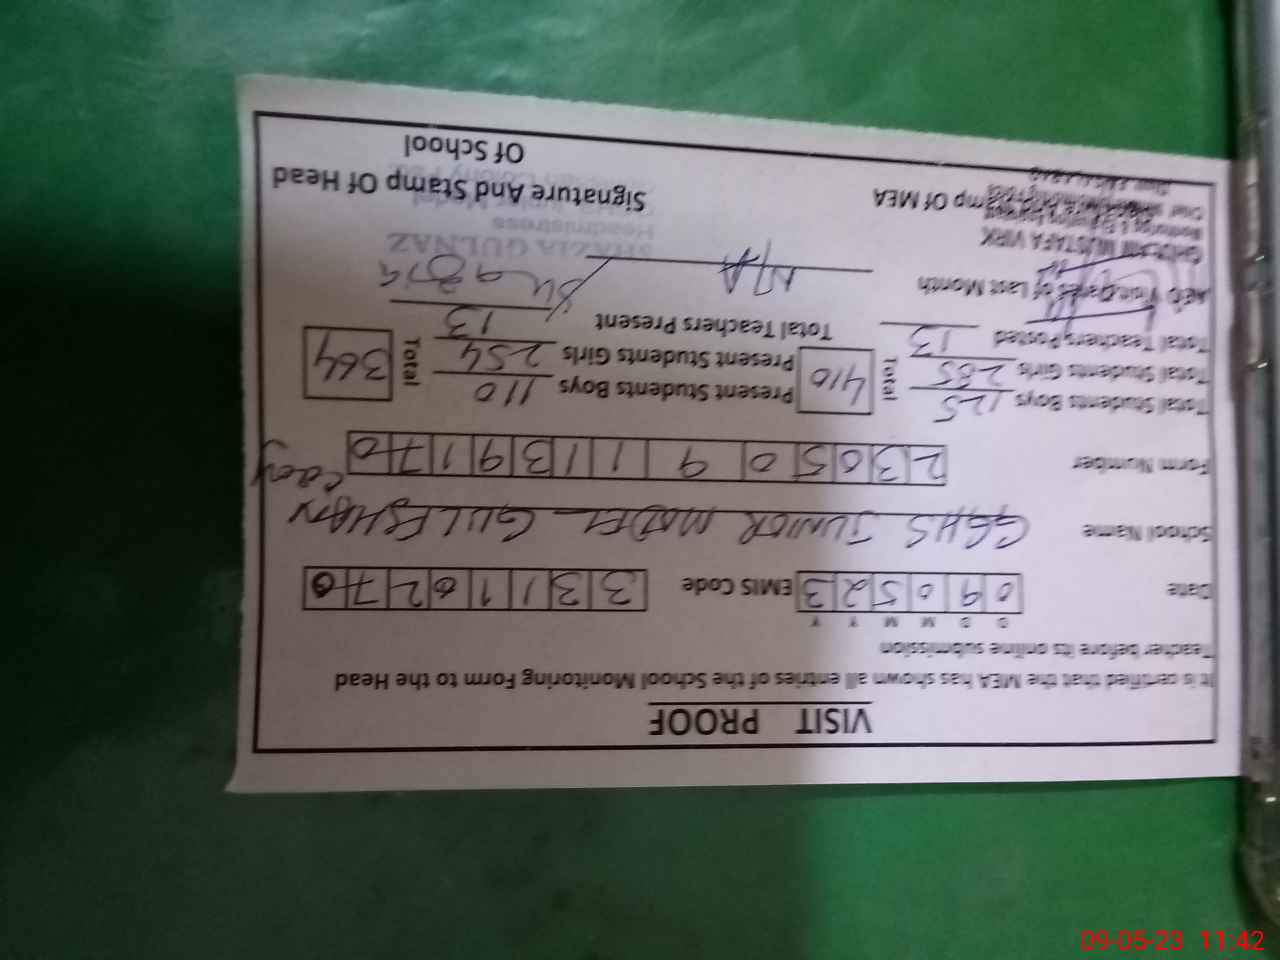 VISIT PROOF
It is certified that the MEA has shown all entries of the School Monitoring Form to the Head
Teacher before its online submission
D D M M Y Y
Date 0 9 0 5 2 3 EMIS Code 3 3 1 1 0 2 7 0
School Name GGHS JUNIOR MODEL GULLESHAN
Form Number 2 3 0 5 0 9 1 1 3 9 1 7 0
Total Students Boys 125 Total 410 Present Students Boys 110 Total 364
Total Students Girls 285 Present Students Girls 254
Total Teachers Posted 13 Total Teachers Present 13
of Last Month N/A Shazia
MUSTAFA VIRK SHAZIA GULNAZ
Headmistress
Of MEA Signature And Stamp Of Head
Of School
09-05-23 11:42